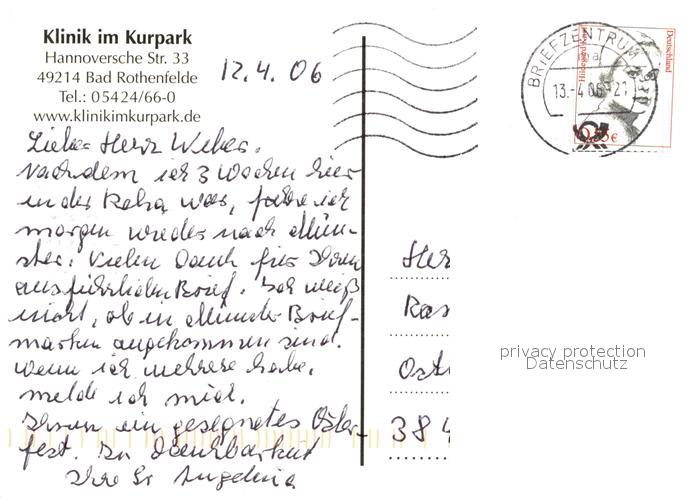 Klinik im Kurpark
Hannoversche Str. 33
49214 Bad Rothenfelde
Tel.: 05424/66-0
www.klinikimkurpark.de
12.4.06
Lieber Herr Weber.
Nachdem ich 3 Wochen hier
in der Reha war, fahre ich
morgen wieder nach Mün-
ster. Vielen Dank für Ihren
ausführlichen Brief. Ich weiß
nicht, ob in Münster Brief-
marken angekommen sind.
Wenn ich mehrere habe,
melde ich mich.
Ihnen ein gesegnetes Oster-
fest. In Dankbarkeit
Ihre Sr Angelina
BRIEFZENTRUM
13.-4.06-21
Deutschland
0,55€
Her
Ras
Ostr
384
privacy protection
Datenschutz